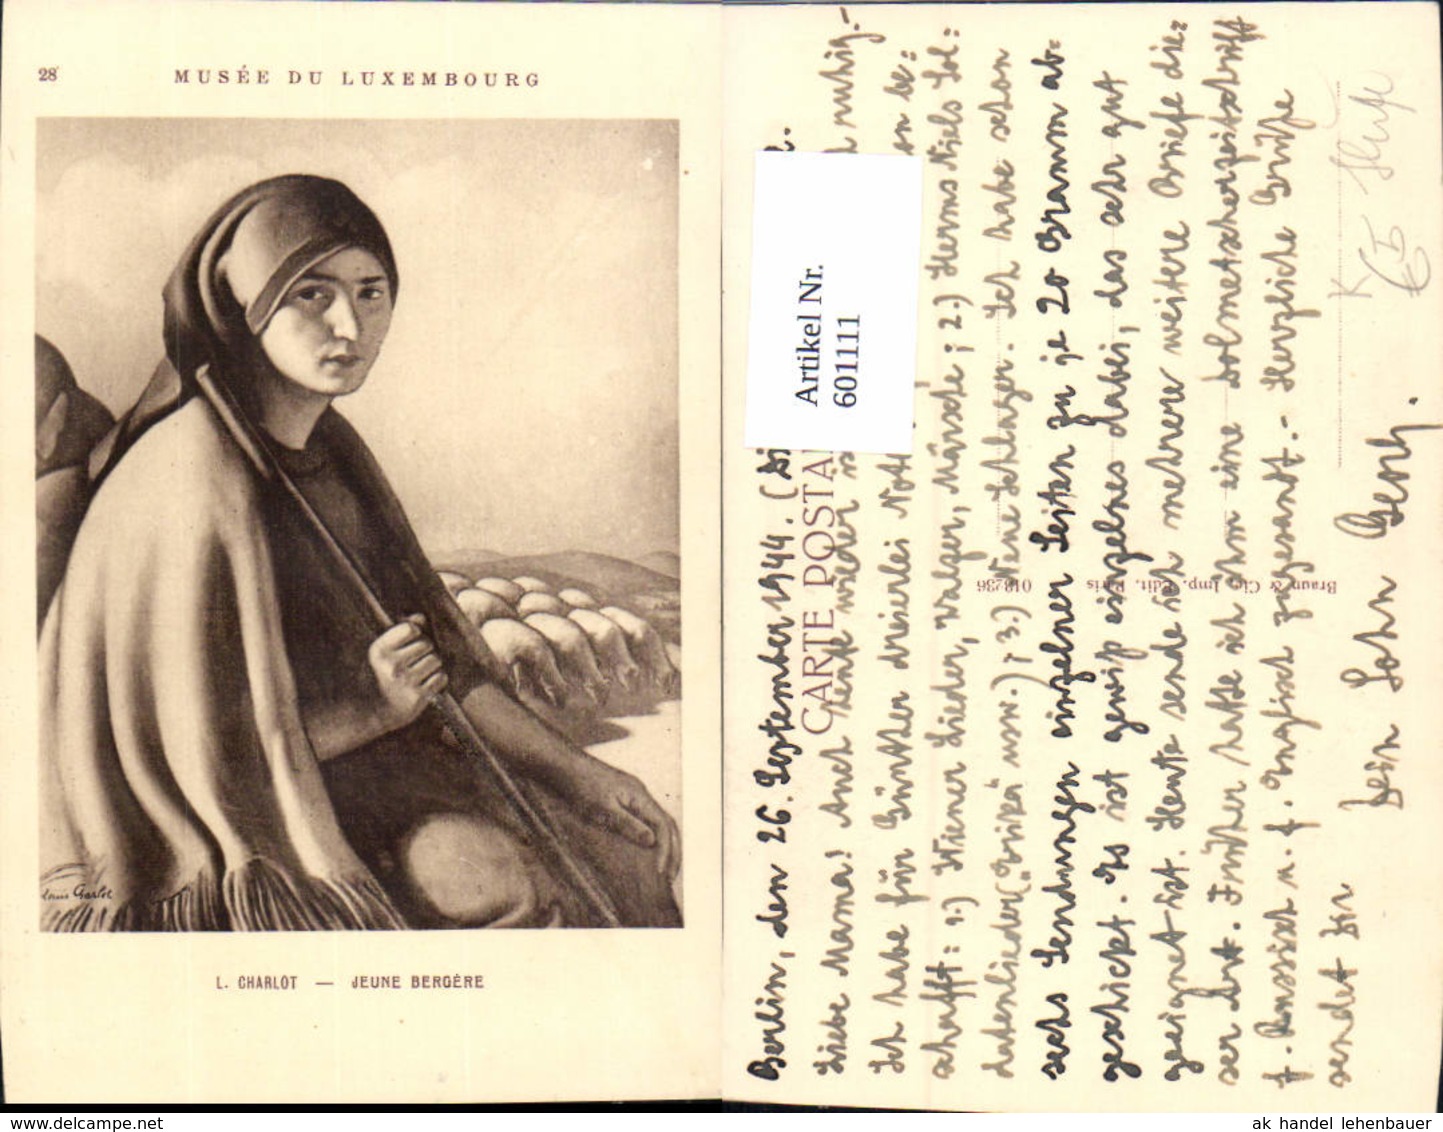 28
MUSÉE DU LUXEMBOURG
Louis Charlot
L. CHARLOT — JEUNE BERGÈRE
CARTE POSTA
Braun & Cie, Imp. Edit. Paris 018236
Artikel Nr.
601111
Berlin, den 26. September 1944. (Di
Liebe Mama! Auch heute wieder is ruhig.-
Ich habe für Günther dreierlei Not on be=
schafft: 1.) Wiener Lieder, Walzer, Märsche; 2.) Herms Niels Sol=
datenlieder („Erika" usw.); 3.) Neue Schlager. Ich habe schon
sechs Sendungen einzelner Seiten zu je 20 Gramm ab=
geschickt. Es ist gewiß einzelnes dabei, das sehr gut
geeignet ist. Heute sende ich mehrere weitere Briefe die=
ser Art. Früher hatte ich ihm eine Dolmetscherzeitschrift
f. Russisch u. f. Englisch zugesandt.- Herzliche Grüße
sendet Dir
Dein Sohn Georg.
K
ak handel lehenbauer
delcampe.net